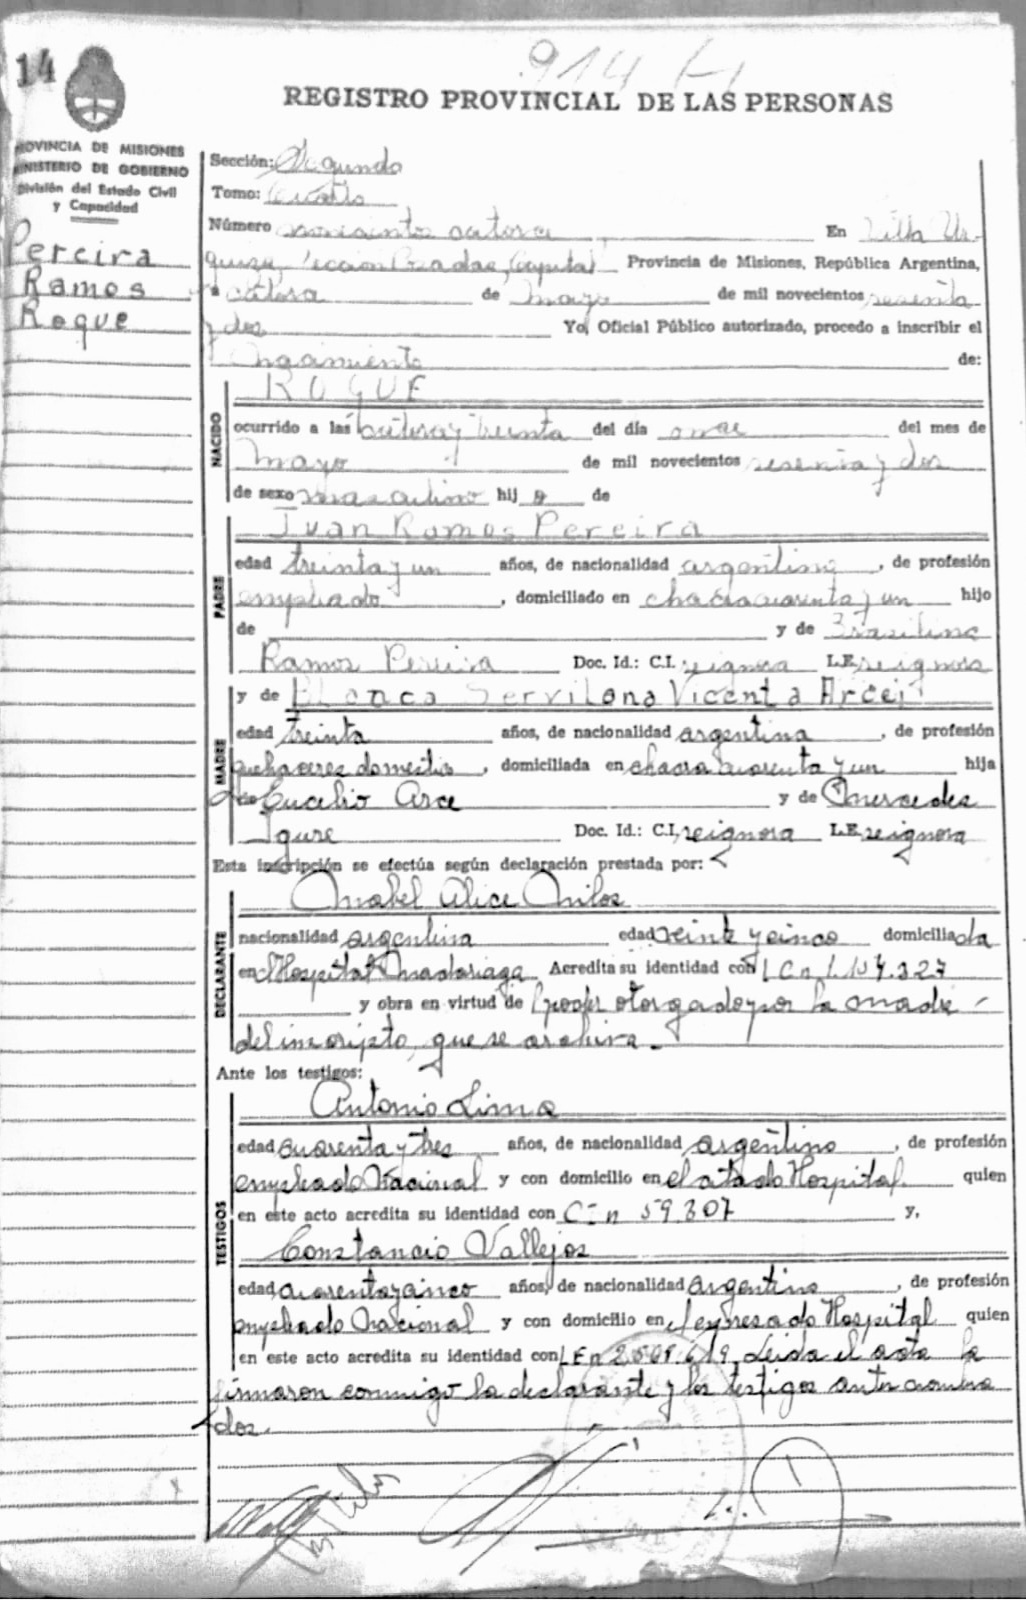 14
914
REGISTRO PROVINCIAL DE LAS PERSONAS
PROVINCIA DE MISIONES
MINISTERIO DE GOBIERNO
División del Estado Civil
y Capacidad
Pereira
Ramos
Roque
Sección: Segunda
Tomo: Cuarto
Número novecientos catorce En Villa Ur-
quiza, Sección Posadas, Capital Provincia de Misiones, República Argentina,
a catorce de mayo de mil novecientos sesenta
y dos Yo, Oficial Público autorizado, procedo a inscribir el
nacimiento de:
NACIDO
ROQUE
ocurrido a las catorce y treinta del día once del mes de
mayo de mil novecientos sesenta y dos
de sexo masculino hijo de
PADRE
Juan Ramos Pereira
edad treinta y un años, de nacionalidad argentina, de profesión
empleado, domiciliado en chacra cuarenta y un hijo
de y de Brasilina
Ramos Pereira Doc. Id.: C.I. se ignora L.E. se ignora
MADRE
y de Blanca Servilana Vicenta Arce
edad treinta años, de nacionalidad argentina, de profesión
quehaceres domestics, domiciliada en chacra cuarenta y un hija
de Eucelio Arce y de Mercedes
Doc. Id.: C.I, se ignora L.E. se ignora
Esta inscripción se efectúa según declaración prestada por:
DECLARANTE
Mabel Alice
nacionalidad argentina edad veinte y cinco domiciliada
en el Hospital Madariaga Acredita su identidad con L C n 1.157.327
y obra en virtud de poder otorgado por la madre -
del inscripto, que se archiva.-
Ante los testigos:
TESTIGOS
Antonio Lima
edad cuarenta y tres años, de nacionalidad argentino, de profesión
empleado Nacional y con domicilio en el citado Hospital quien
en este acto acredita su identidad con C I n 59.307 y,
Constancio Vallejos
edad cuarenta y cinco años, de nacionalidad argentino, de profesión
empleado Nacional y con domicilio en el expresado Hospital quien
en este acto acredita su identidad con L E n Leida el acta la
firmaron conmigo la declarante y los testigos antes nomina
dos.